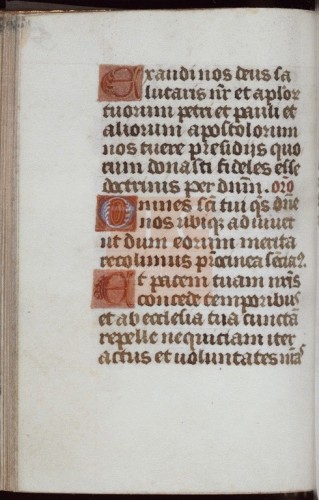 Exaudi nos deus sa
lutaris nr̄ et aplor̄
tuorum petri et pauli et
aliorum apostolorum
nos tuere presidijs quo
rum donasti fideles esse
doctrinis per dnm̄. oro
Omnes sc̄ti tui qs̄ dn̄e
nos ubiq; adiuuet
ut dum eorum merita
recolimus
Et pacem tuam nr̄is
concede temporibus
et ab ecclesia tua cunctā
repelle nequiciam iter
actus et uoluntates